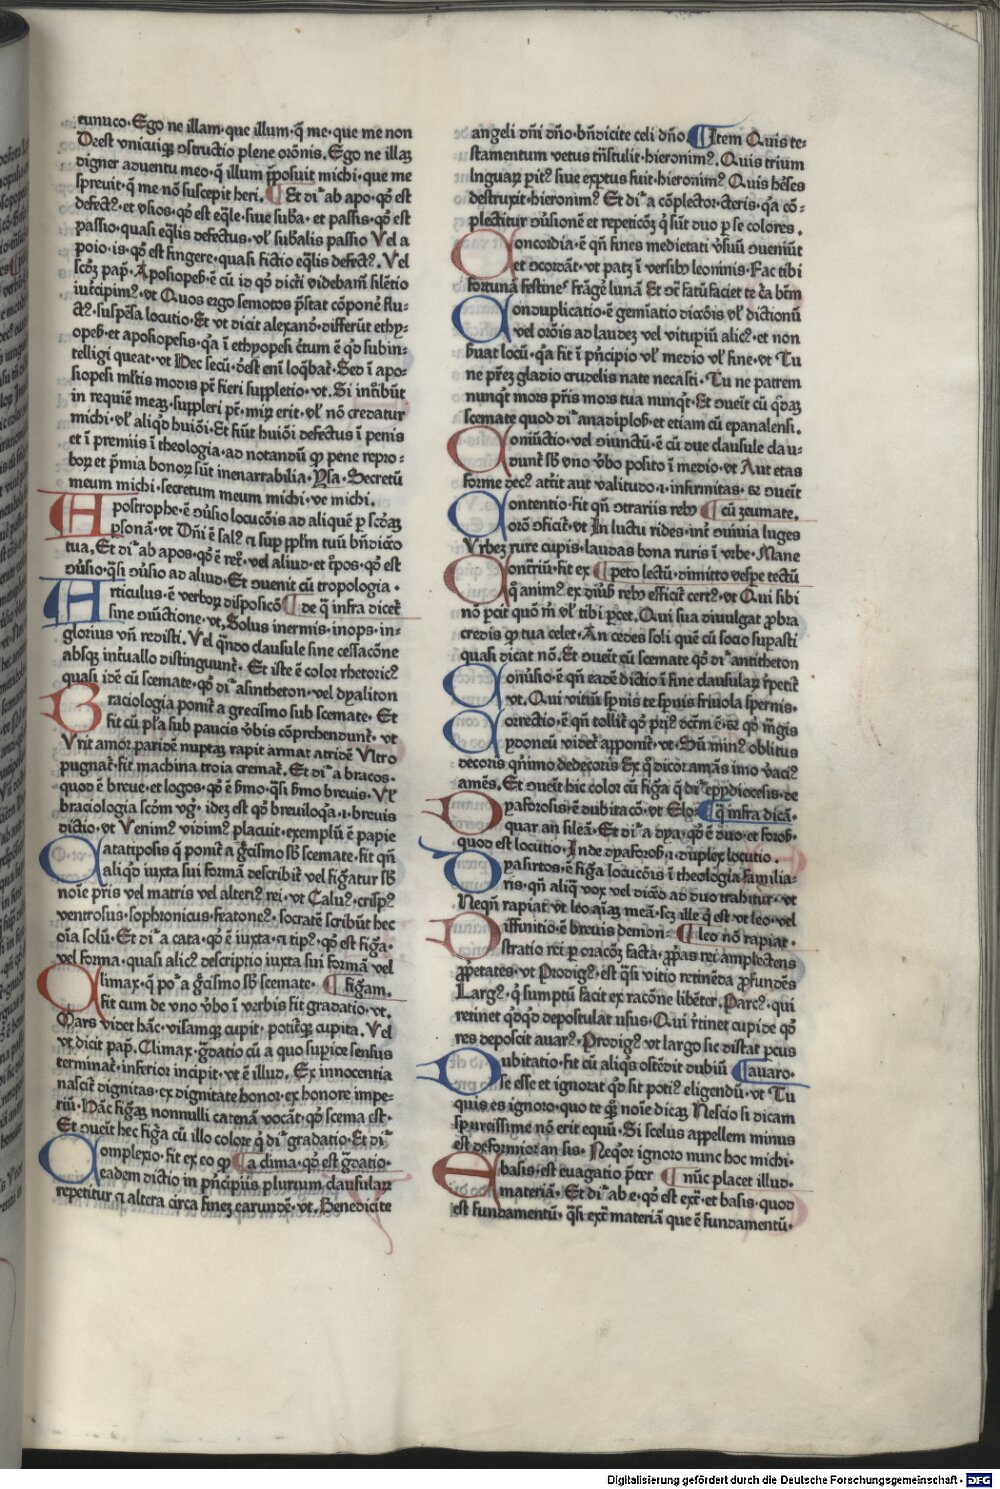 eunuco. Ego ne illam. que illum. q̄ me. que me non
Deest vnicuiqꝫ ↄstructio plene orōnis. Ego ne illaꝫ
digner aduentu meo. q̄ illum p̄posuit michi. que me
spreuit. q̄ me nō suscepit heri. ¶ Et dī ab apo. qͦ est
defectꝰ. et vsios. qͦ est eq̄le. siue suba. et passis. qͦ est
passio. quasi eq̄lis defectus. vl' sub̄alis passio Vel a
poio. is. qͦ est fingere. quasi fictio eq̄lis defectꝰ. Vel
scd̄ꝫ pap̄. Aposiopeß. ē cū id qͦ dict'i videbam' silētio
int'cipimꝰ. vt Quos ego sꝫ motos p̄stat cōponē flu-
ctꝰ. suspēsa locutio. Et vt dicit alexand'. differūt ethy-
opeß. et aposiopesis. qꝛ ī ethyopesi c'tum ē qͦ subin-
telligi queat. vt Hec secū. d'est eni loq̄bat'. Sed ī apo-
siopesi ml'tis modis pt̄ fieri suppletio. vt. Si int'ibūt
in requiē meaꝫ. suppleri pt̄. miꝝ erit. vl' nō credatur
michi. vl' aliqd' huiōi. Et fiūt huiōi defectus ī penis
et ī premiis ī theologia. ad notandū ꝙ pene repro-
boꝝ et p̄mia bonoꝝ sūt inenarrabilia. Ysa. Secretū
meum michi. secretum meum michi. ve michi.
Apostrophe. ē ↄuersio locucōis ad aliquē p scd̄aꝫ
psonā. vt Dn̄i ē salꝰ ꞇ sup pp̄lm tuū bn̄dictō
tua. Et dī ab apos. qͦ ē ret°. vel aliud. et t'pos. qͦ est
ↄuersio. q̄si ↄuersio ad aliud. Et ↄuenit cū tropologia.
Articulus. ē verboꝝ disposicō ¶ de q̄ infra dicet'
sine ↄiūctione. vt. Solus inermis. inops. in-
glorius vn̄ redisti. Vel qn̄do clausule sine cessacōne
absqꝫ int'uallo distinguunt'. Et iste ē color rhetoricꝰ
quasi idē cū scemate. qͦ dī asintheton. vel dyaliton
Braciologia ponit' a grecismo sub scemate. Et
fit cū pl'a sub paucis v'bis cōprehendunt'. vt
Vrit amor paridē nuptaꝫ rapit armat atridē Vltro
pugnat'. fit machina troia cremat'. Et dī a bracos.
quod ē breue. et logos. qͦ ē s'mo. q̄si s'mo breuis. Vl'
braciologia scd'm vgꝰ. idez est qͦ breuiloq̄a. ı. breuis
dictio. vt Venimꝰ vidimꝰ placuit. exemplū ē papie
Catatiposis q̄ ponit' a g̊cismo sb' scemate. fit qn̄
aliqͦ iuxta sui formā describit' vel fig̊atur sb'
noīe pr̄is vel matris vel alteriꝰ rei. vt Caluꝰ. crispꝰ
ventrosus. sophronicus. featoneꝰ. socratē scribūt hec
oīa solū. Et dī a cata. qͦ ē iuxta. ꞇ tipꝰ. qͦ est fig̊a.
vel forma. quasi alicꝰ descriptio iuxta sui formā vel
Climax. q̄ poī a g̊cismo sb' scemate. ¶ fig̊am.
fit cum de vno v'bo ī verbis fit gradatio. vt.
Mars videt hāc. visamqꝫ cupit. potit'qꝫ cupita. Vel
vt dicit pap̄. Climax. g̊datio cū a quo sup̄ioꝛ sensus
terminat'. inferioꝛ incipit. vt ē illud. Ex innocentia
nascit' dignitas. ex dignitate honoꝛ. ex honore impe-
riū. Hāc fig̊aꝫ nonnulli catenā vocāt. qͦ scema est.
Et ↄuenit hec fig̊a cū illo colore q̄ dī gradatio. Et dī
Complexio. fit ex eo ꝙ ¶ a clima. qͦ est g̊datio.
eadem dictio in p'ncipiis plurium clausulaꝝ
repetitur ꞇ altera circa fineꝫ earundē. vt. Benedicite
angeli dn̄i dn̄o. bn̄dicite celi dn̄o. ¶ Item Quis te-
stamentum vetus trn̄stulit. hieronimꝰ. Quis trium
lnguaꝝ pitꝰ siue exptus fuit. hieronimꝰ Quis h'eses
destruxit. hieronimꝰ Et dī a cōplectoꝛ. cteris. qꝛ cō-
plectitur ↄuersionē et repeticōꝫ q̄ sūt duo p se colores.
Concordia. ē qn̄ fines medietati v'suū ↄueniūt
et ↄcordāt. vt patꝫ ī versibꝰ leoninis. Fac tibi
fortunā festineꝰ frāgē lunā Et dr̄ satū faciet te t'ra br̄m
Conduplicatio. ē gemiatio diccōis vl' dictionū
vel orōis ad laudeꝫ vel vitupiū alicꝰ. et non
s'uat locū. qꝛ fit ī p'ncipio vl' medio vl' fine. vt Tu
ne pr̄eꝫ gladio crudelis nate necasti. Tu ne patrem
nunqͣt mors pr̄is mors tua nunqͣt. Et ↄueīt cū qͦdaꝫ
scemate quod dī anadiploß. et etiam cū epanalensi.
Coniūctio. vel ↄiunctū. ē cū due clausule clau-
dunt' sb' vno v'bo posito ī medio. vt Aut etas
forme decꝰ att'it aut valitudo. ı. infirmitas. sꝫ ↄueīt
Contentio. fit qn̄ ↄtrariis rebꝰ ¶ cū zeumate.
orō ↄficit'. vt In luctu rides. int' ↄuiuia luges
Vrbeꝫ rure cupis. laudas bona ruris ī vrbe. Mane
Contrariū. fit ex ¶ peto lectū. dimitto vespe tectū
q̄ animꝰ ex diuß rebꝰ efficit' certꝰ. vt Qui sibi
nō pcit quō m̄ vl' tibi pcet. Qui sua diuulgat p̄bra
credis ꝙ tua celet. An cedes soli quē cū socio supasti
quasi dicat nō. Et ↄueīt cū scemate qͦ dī antitheton
Conuersio. ē qn̄ eadē dictio ī fine clausulaꝝ r̄petit'
vt. Qui vitiū spnis te spnis friuola spernis.
Correctio. ē qn̄ tollit' qͦ priꝰ dc̄m ē. sꝫ qͦ m̄gis
ydoneū videt' apponit'. vt. Sū minꝰ oblitus
decoris qn̄imo dedecoris Ex q̄ dicor amās imo vaciꝰ
amēs. Et ↄueīt hic color cū fig̊a q̄ dī epydiocesis. de
Dyaforosis. ē dubitacō. vt Elo- ¶ q̄ infra dicā.
quar an sileā. Et dī a dya. qͦ ē duo. et foroß.
quod est locutio. Inde dyaforoß. ı. duplex locutio.
Dyasirtos. ē fig̊a locucōis ī theologia familia-
ris. qn̄ aliq̄ vox vel dictio ad duo trahitur. vt
Neqn̄ rapiat vt leo aīaꝫ meā. scꝫ ille q̄ est vt leo. vel
Diffinitio. ē breuis demon- ¶ leo nō rapiat.
stratio rei p oracōꝫ facta. p̄pas rei amplectens
p̄petates. vt Prodigꝰ. est q̄si vitio retinēda p̄fundēs
Largꝰ. q̄ sumptū facit ex racōne libēter. Parcꝰ. qui
retinet qͦdqͦ depostulat usus. Qui r̄tinet cupide qͦ
res deposcit auarꝰ. Prodigꝰ vt largo sic distat pcus
Dubitatio. fit cū aliqͦs ostēdit dubiū ¶ auaro.
se esse et ignorat qͦd sit potiꝰ eligendū. vt Tu
quis es ignoro. quo te q̊ꝫ noīe dicaꝫ Nescio si dicam
spurcissime nō erit equū. Si scelus appellem minus
est deformior an sis. Neqͦr ignoro nunc hoc michi.
Ebasis. est euagatio p̄ter ¶ nūc placet illud.
materiā. Et dī ab e. qͦ est ext°. et basis. quod
est fundamentū. q̄si ext° materiā que ē fundamentū.
Digitalisierung gefördert durch die Deutsche Forschungsgemeinschaft - DFG